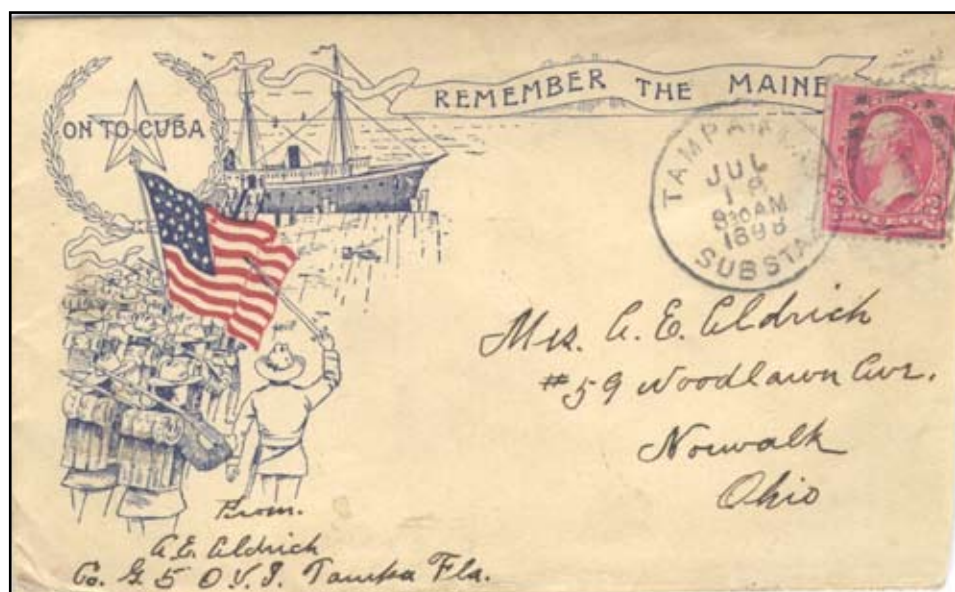 REMEMBER THE MAINE
ON TO CUBA
TAMPA
JUL
18
8 30 AM
1898
SUBSTA
Mrs. A. E. Aldrich
#59 Woodlawn Ave.
Norwalk
Ohio
From.
A. E. Aldrich
Co. G. 5 O. V. I. Tampa Fla.